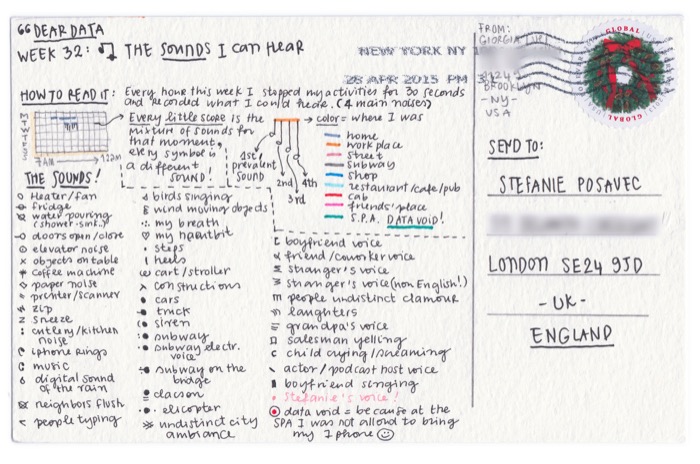 DEAR DATA
WEEK 32: THE SOUNDS I CAN HEAR
NEW YORK NY 1
28 APR 2015 PM
HOW TO READ IT: Every hour this week I stopped my activities for 30 seconds
and recorded what I could hear. (4 main noises)
M
T
W
T
F
S
S
7AM
12PM
Every little score is the
mixture of sounds for
that moment,
every symbol is
a different
SOUND!
1st/
prevalent
SOUND
2nd
3rd
4th
color = where I was
home
workplace
street
subway
shop
restaurant/cafe/pub
cab
friends' place
S.P.A. DATA VOID!
THE SOUNDS!
Heater/fan
fridge
water pouring
(shower-sink..)
doors open/close
elevator noise
objects on table
coffee machine
paper noise
printer/scanner
zip
sneeze
cutlery/kitchen
noise
iphone rings
music
digital sound
of the rain
neighbors flush
people typing
birds singing
wind moving objects
my breath
my heartbit
steps
heels
cart/stroller
constructions
cars
truck
siren
subway
subway electr.
voice
subway on the
bridge
clacson
elicopter
undistinct city
ambiance
boyfriend voice
friend/coworker voice
stranger's voice
stranger's voice (non English!)
people undistinct clamour
laughters
grandpa's voice
salesman yelling
child crying/screaming
actor/podcast host voice
boyfriend singing
Stefanie's voice!
data void = because at the
SPA I was not allowed to bring
my iphone
FROM:
GIORGIA LUPI
BROOKLYN
-NY-
USA
GLOBAL
SEND TO:
STEFANIE POSAVEC
LONDON SE24 9JD
-UK-
ENGLAND